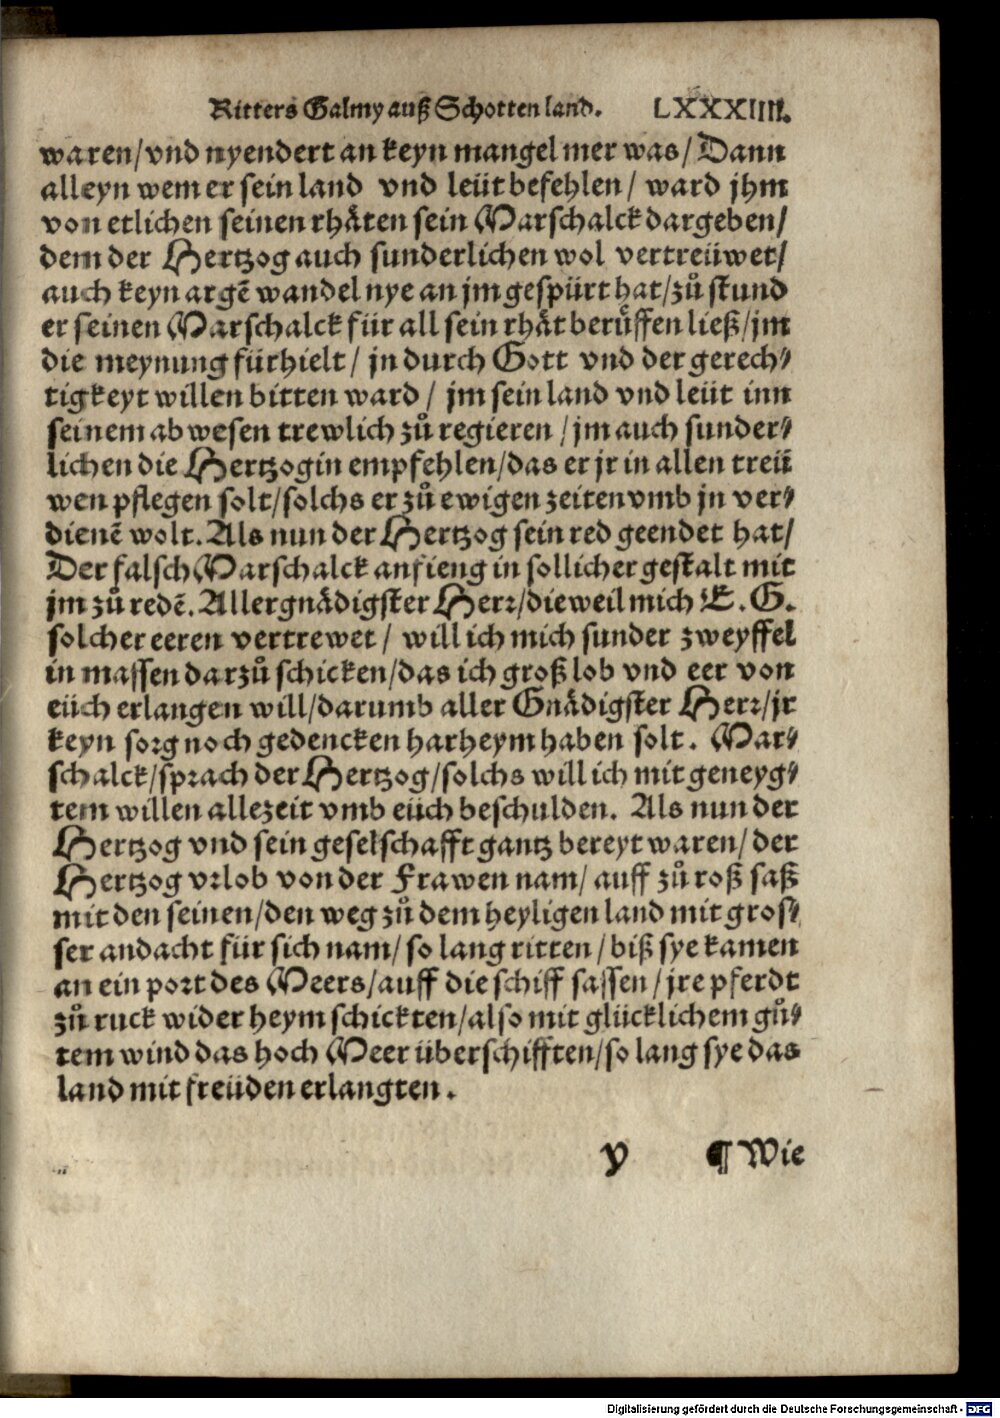 Ritters Galmy auß Schotten land. LXXXIIII.
waren/vnd nyendert an keyn mangel mer was/Dann
alleyn wem er sein land vnd leüt befehlen/ ward jhm
von etlichen seinen rhäten sein Marschalck dargeben/
dem der Hertzog auch sunderlichen wol vertreüwet/
auch keyn argẽ wandel nye an jm gespürt hat/zů stund
er seinen Marschalck für all sein rhät berůffen ließ/jm
die meynung fürhielt/ jn durch Gott vnd der gerech⸗
tigkeyt willen bitten ward/ jm sein land vnd leüt inn
seinem abwesen trewlich zů regieren/jm auch sunder⸗
lichen die Hertzogin empfehlen/das er jr in allen treü
wen pflegen solt/solchs er zů ewigen zeiten vmb jn ver⸗
dienẽ wolt. Als nun der Hertzog sein red geendet hat/
Der falsch Marschalck anfieng in sollicher gestalt mit
jm zů redẽ. Allergnädigster Herr/dieweil mich E. G.
solcher eeren vertrewet/ will ich mich sunder zweyffel
in massen darzů schicken/das ich groß lob vnd eer von
eüch erlangen will/darumb aller Gnädigster Herr/jr
keyn sorg noch gedencken harheym haben solt. Mar⸗
schalck/sprach der Hertzog/solchs will ich mit geneyg⸗
tem willen allezeit vmb eüch beschulden. Als nun der
Hertzog vnd sein geselschafft gantz bereyt waren/ der
Hertzog vrlob von der Frawen nam/ auff zů roß saß
mit den seinen/den weg zů dem heyligen land mit gros⸗
ser andacht für sich nam/ so lang ritten/biß sye kamen
an ein port des Meers/auff die schiff sassen/jre pferdt
zů ruck wider heym schickten/also mit glücklichem gů⸗
tem wind das hoch Meer überschifften/so lang sye das
land mit freüden erlangten.
y ¶ Wie
Digitalisierung gefördert durch die Deutsche Forschungsgemeinschaft - DFG